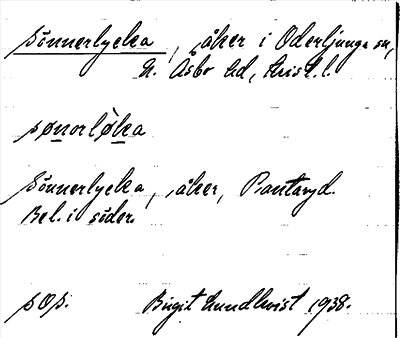 Sönnerlycka, åker i Oderljunga sn,
N. Åsbo hd, Krist. l.
sønorløka
Sönnerlycka, åker, Pantaryd.
Bel. i söder.
sOp. Birgit Lundkvist 1938.